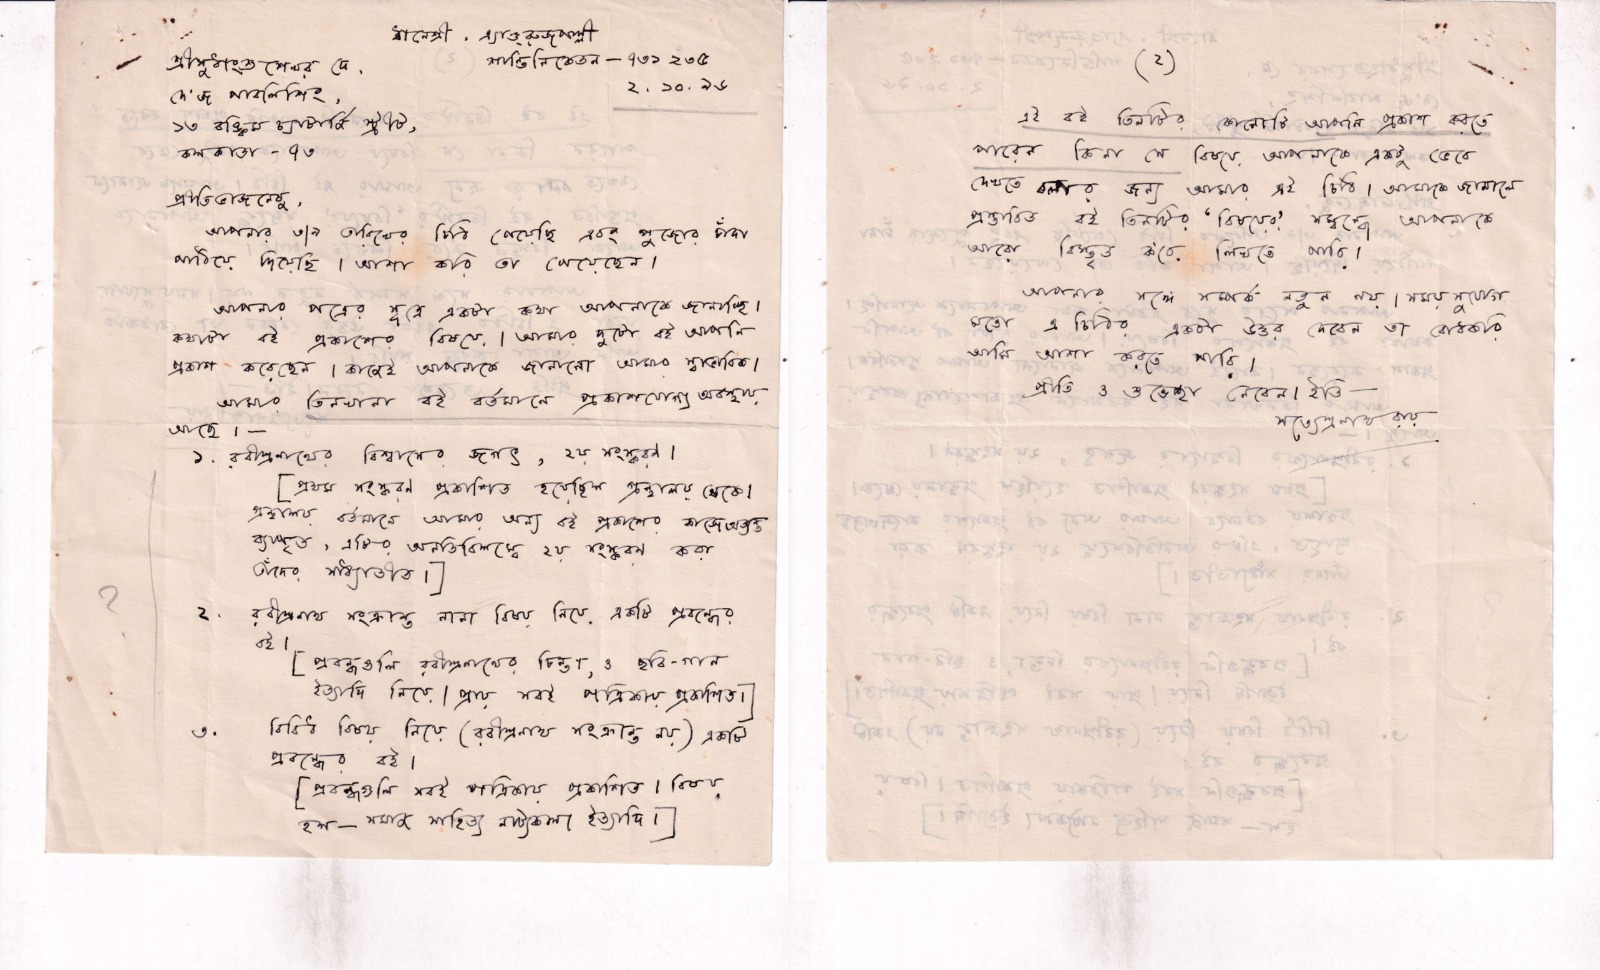 এ্যান্ড্রুজপল্লী
শ্রীসুধাংশুশেখর দে,
শান্তিনিকেতন – ৭৩১ ২৩৫
দে'জ পাবলিশিং,
২. ১০. ৯৬
১৩ বঙ্কিম চ্যাটার্জি স্ট্রীট,
কলকাতা – ৭৩
প্রীতিভাজনেষু,
আপনার ৩/৯ তারিখের চিঠি পেয়েছি এবং পুজোর চাঁদা
পাঠিয়ে দিয়েছি। আশা করি তা পেয়েছেন।
আপনার পত্রের সূত্রে একটা কথা আপনাকে জানাচ্ছি।
কথাটা বই প্রকাশের বিষয়ে। আমার দুটো বই আপনি
প্রকাশ করেছেন। কাজেই আপনাকে জানানো আমার স্বাভাবিক।
আমার তিনখানা বই বর্তমানে প্রকাশযোগ্য অবস্থায়
আছে। —
১. রবীন্দ্রনাথের বিশ্বাসের জগৎ, ২য় সংস্করণ।
[প্রথম সংস্করণ প্রকাশিত হয়েছিল গ্রন্থালয় থেকে।
গ্রন্থালয় বর্তমানে আমার অন্য বই প্রকাশের কাজে অত্যন্ত
ব্যাপৃত, এটির অনতিবিলম্বে ২য় সংস্করণ করা
তাঁদের সাধ্যাতীত।]
২. রবীন্দ্রনাথ সংক্রান্ত নানা বিষয় নিয়ে একটি প্রবন্ধের
বই।
[প্রবন্ধগুলি রবীন্দ্রনাথের চিন্তা, ও ছবি-গান
ইত্যাদি নিয়ে। প্রায় সবই পত্রিকায় প্রকাশিত।]
৩. বিবিধ বিষয় নিয়ে (রবীন্দ্রনাথ সংক্রান্ত নয়) একটি
প্রবন্ধের বই।
[প্রবন্ধগুলি সবই পত্রিকায় প্রকাশিত। বিষয়
হল— সমাজ সাহিত্য নাট্যকলা ইত্যাদি।]
(২)
এই বই তিনটির কোনোটি আপনি প্রকাশ করতে
পারেন কিনা সে বিষয়ে আপনাকে একটু ভেবে
দেখতে বলার জন্য আমার এই চিঠি। আমাকে জানালে
প্রস্তাবিত বই তিনটির 'বিষয়ের' সম্বন্ধে আপনাকে
আরো বিস্তৃত ক'রে লিখতে পারি।
আপনার সঙ্গে সম্পর্ক নতুন নয়। সময় সুযোগ
মতো এ চিঠির একটা উত্তর দেবেন তা বোধকরি
আমি আশা করতে পারি।
প্রীতি ও শুভেচ্ছা নেবেন। ইতি—
সত্যেন্দ্রনাথ রায়